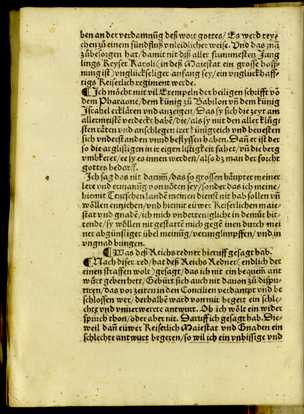 ben an der verdamnũg deß wort gottes/ Es werd rey⸗
chen zũ einem sündfluß vnleidlicher weise. Vnd das zũ
zũbesorgen hat/ damit nit deß aller frummesten Jung
lings Keyser Karoli/ in deß Maiestat ein grosse hoff
nung ist/ vnglückseliger anfang sey/ ein vnglückhaff⸗
tigs Keiserlich regiment werde.
¶ Ich möcht mit vil Exempeln der heiligen schrifft võ
dem Pharaone/ dem künig zũ Babilon vñ dem künig
Israhel erclären vnd anzeigen/ Das sy sich die zyt am
allermeist verderbt habẽ/ die/ als sy mit den aller klüg
sten räten vnd anschlegen ier künigreich vnd
sich vnderstanden vnnd beflyssen haben. Dan er ist der
so die argListigen in ier eigen listigkeit fahet/ vñ die berg
vmbkeret/ ee sy es innen werden/ also dz man der forcht
gottes bedarff.
Ich sag das nit darum̃/ das so grossen häupter meiner
lere vnd ermanũg von nöten sey/ sonder das ich meine/
dem Teutschen land meinen dienst nit hab sollen vñ
wöllen entziehen/ vnd hiemit eüwer Keiserlichen maie⸗
stat vnd gnadẽ/ ich mich vndertenigliche in demüt bit⸗
tende/ sy wöllen nit gestatte mich gegẽ inen durch mei
ner abgünstiger übel meinũg/ verunglimpffen/ vnd in
vngnad bringen.
¶ Was deß Reichs redner hieruff gesagt hab.
¶ Nach diser red/ hat deß Reichs Redner/ endlich der
einen straffen wolt/ gesagt/ das ich nit ein bequem ant
würt geben hett/ Gebürt sich auch nit dauon zũ dispu⸗
tieren/ das vor zeiten in den Concilien verdampt vnd be
schlossen wer/ derhalbẽ ward von mir begert ein schle⸗
chte vnd vnuerwerete antwurt. Ob ich wölt ein wider
spruch thon/ oder aber nit. Daruff ich gesagt hab. Die⸗
weil dan eüwer Keiserlich Maiestat vnd Gnaden ein
schlechte antwurt begeren/ so wil ich ein vnbissige vnd